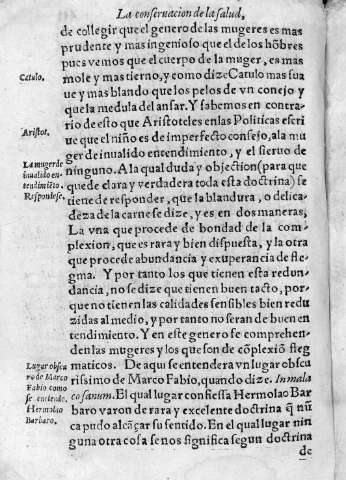 La conseruacion de la salud,
de collegir que el genero de las mugeres es mas
prudente y mas ingenioso que el de los hõbres
pues vemos que el cuerpo de la muger, es mas
Catulo.
mole y mas tierno, y como dize Catulo mas sua
ue y mas blando que los pelos de vn conejo y
que la medula del ansar. Y sabemos en contra-
rio de esto que Aristoteles en las Politicas escri
Aristot.
ue que el niño es de imperfecto consejo, ala mu
ger de inualido entendimiento, y el sieruo de
La muger de
inualido en-
tendimiẽto.
Respondese.
ninguno. A la qual duda y objection (para que
quede clara y verdadera toda esta doctrina) se
tiene de responder, que la blandura, o delica-
deza de la carne se dize, y es en dos maneras,
La vna que procede de bondad de la com-
plexion, que es rara y bien dispuesta, y la otra
que procede abundancia y exuperancia de fle-
gma. Y por tanto los que tienen esta redun-
dancia, no se dize que tienen buen tacto, por-
que no tienen las calidades sensibles bien redu
zidas al medio, y por tanto no seran de buen en
tendimiento. Y en este genero se comprehen-
den las mugeres y los que son de cõplexiõ fleg
Lugar obscu
ro de Marco
Fabio como
se entiende.
Hermolao
Barbaro.
maticos. De aqui se entendera vn lugar obscu
rissimo de Marco Fabio, quando dize. In mala
cosanum. El qual lugar confiessa Hermolao Bar
baro varon de rara y excelente doctrina q̃ nũ
ca pudo alcãçar su sentido. En el qual lugar nin
guna otra cosa se nos significa segun doctrina
de